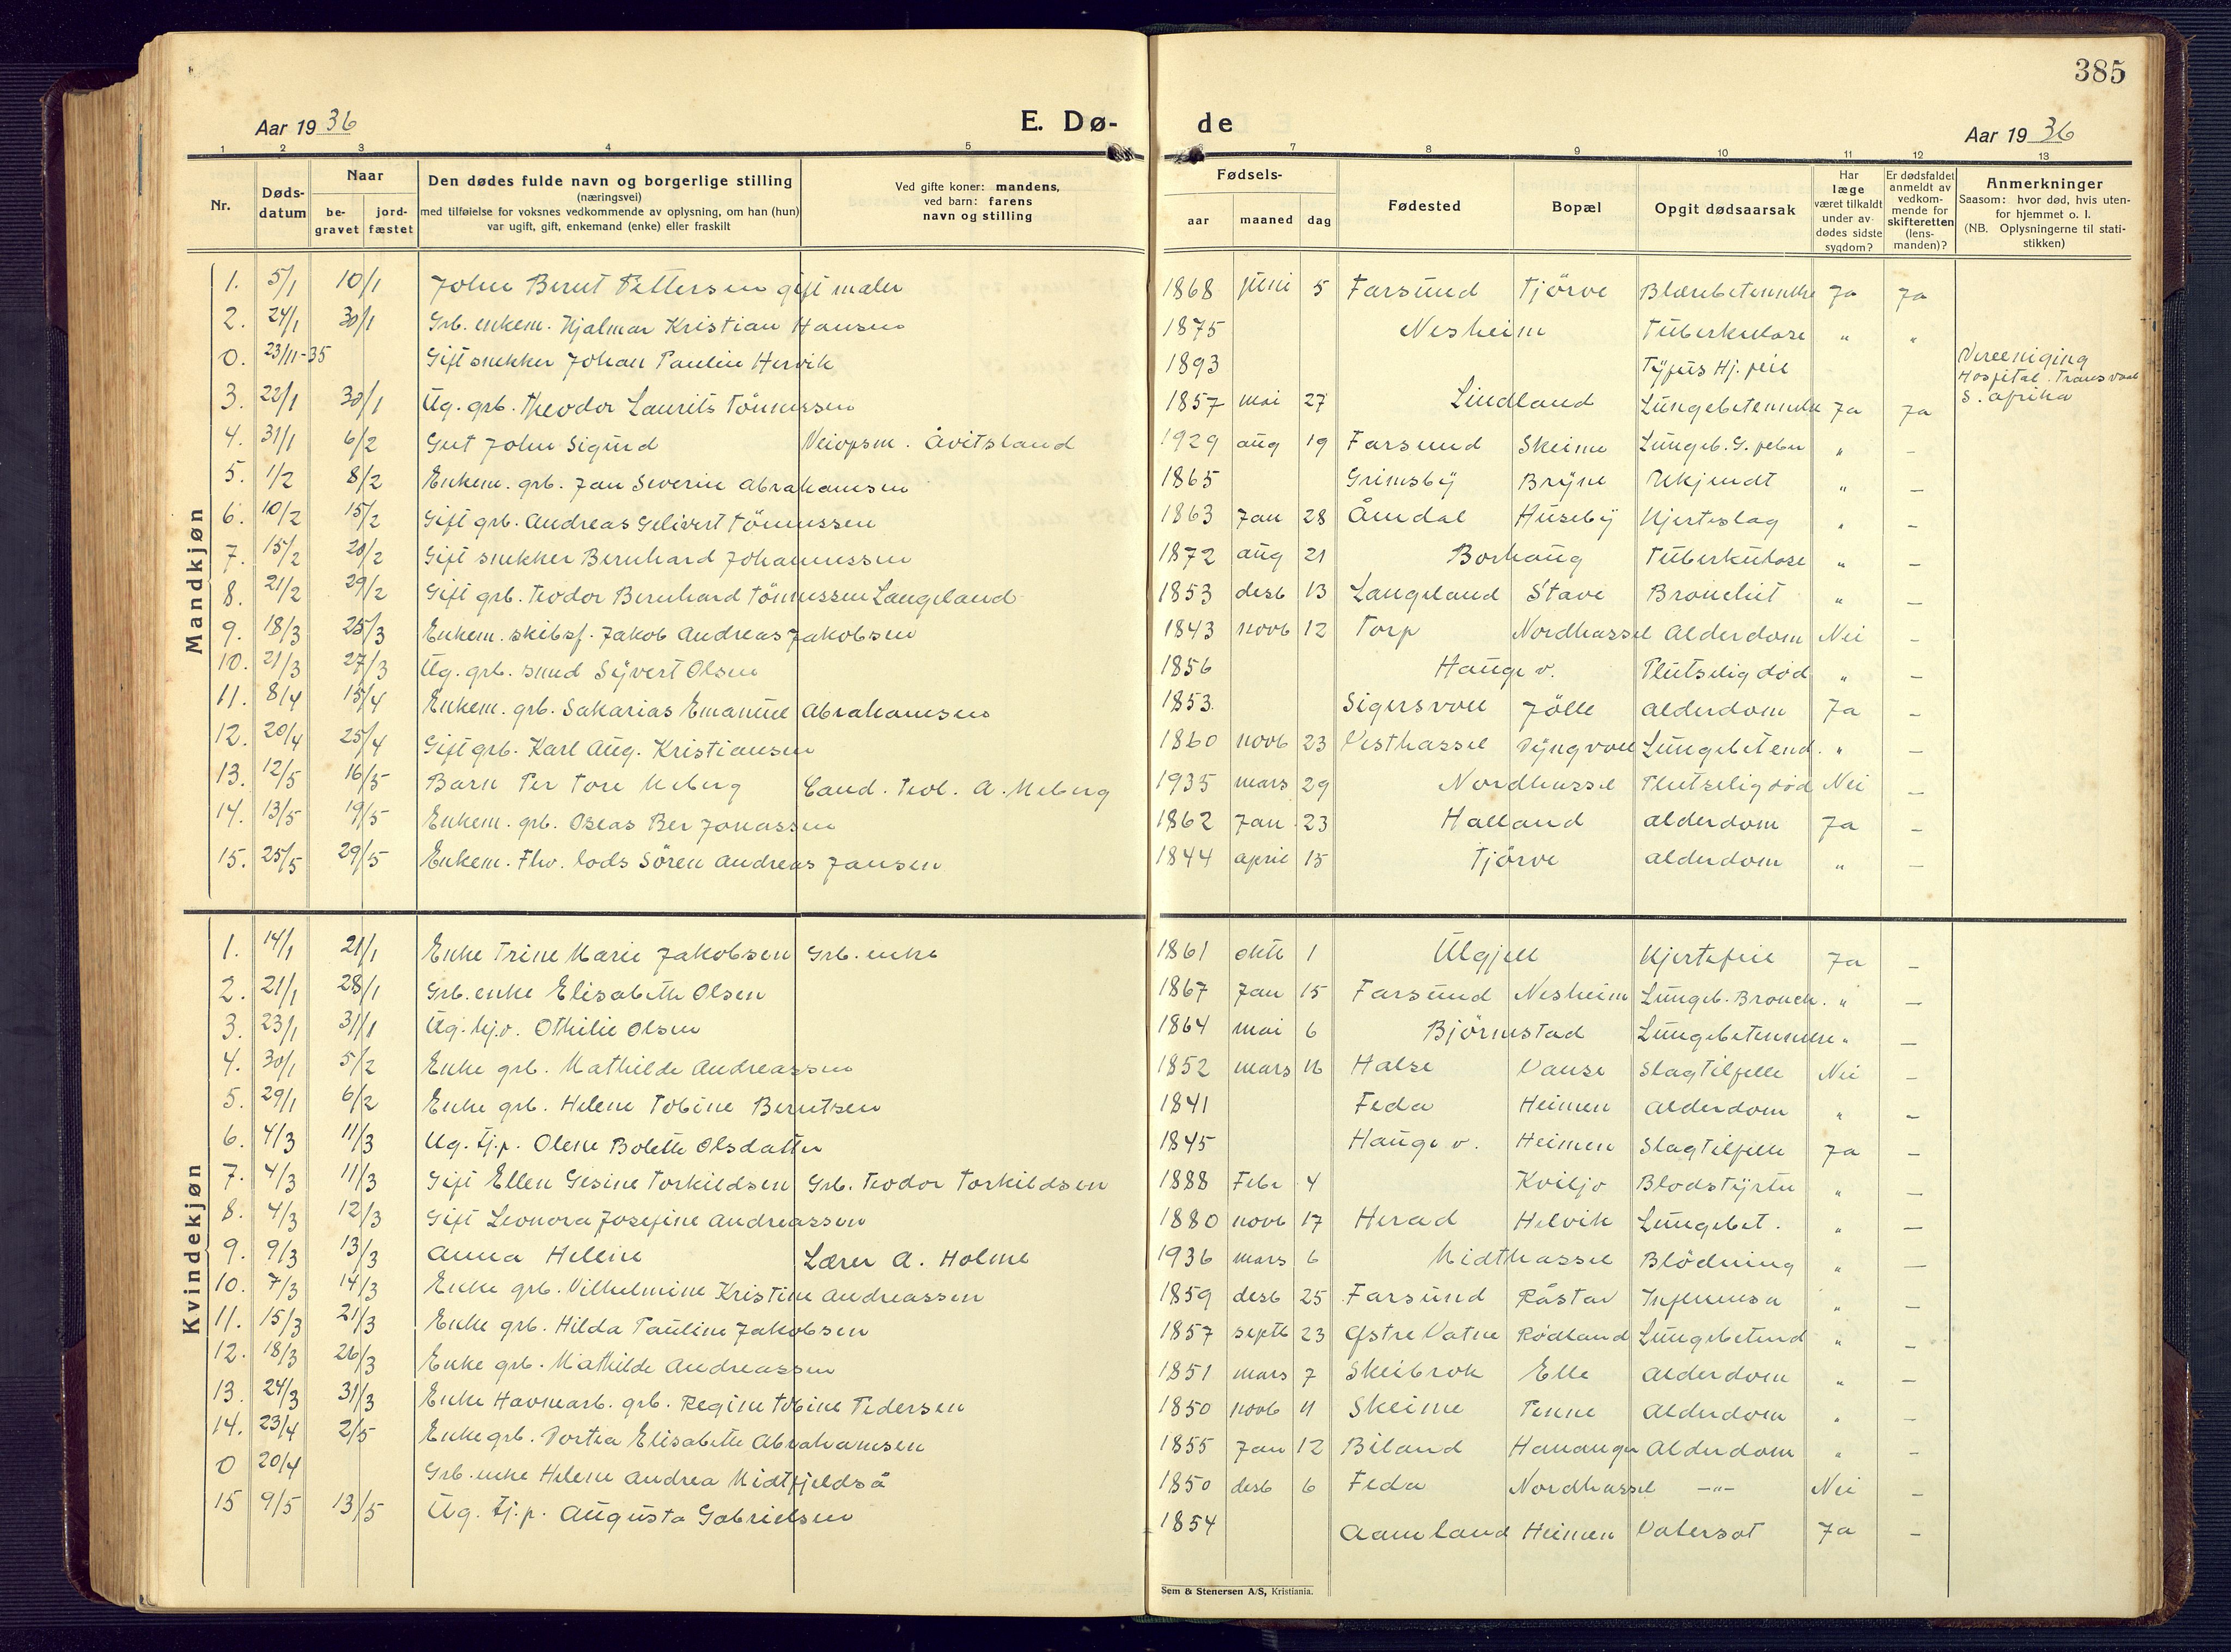 385
Aar 1936 E. Dø- de Aar 1936
1 2 3 4 5 6 7 8 9 10 11 12 13
Nr. Døds-datum Naar be-gravet jord-fæstet Den dødes fulde navn og borgerlige stilling (næringsvei) med tilføielse for voksnes vedkommende av oplysning, om han (hun) var ugift, gift, enkemand (enke) eller fraskilt Ved gifte koner: mandens, ved barn: farens navn og stilling Fødsels- aar maaned dag Fødested Bopæl Opgit dødsaarsak Har læge været tilkaldt under av-dødes sidste sygdom? Er dødsfaldet anmeldt av vedkom-mende for skifteretten (lens-manden)? Anmerkninger Saasom: hvor død, hvis uten-for hjemmet o. l. (NB. Oplysningerne til stati-stikken)
Mandkjøn
1. 5/1 10/1 John Bernt Pettersen gift maler 1868 juni 5 Farsund Tjörve Blærebetennelse Ja Ja
2. 24/1 30/1 Grb. enkem. Hjalmar Kristian Hansen 1875 Nesheim Tuberkulose " "
0. 23/11-35 Gift snekker Johan Paulin Hervik 1893 Typus Hj. feil Vereeniging Hospital. Transvaal S. Afrika
3. 22/1 30/1 Ug. grb. Theodor Laurits Tönnessen 1857 mai 27 Lindland Lungebetennelse Ja Ja
4. 31/1 6/2 Gut John Sigurd Veiopsm. Åvitsland 1929 aug 19 Farsund Skeime Lungeb. G. feber " -
5. 1/2 8/2 Enkem. grb. Jan Severin Abrahamsen 1865 Grimsby Bryne Ukjendt " -
6. 10/2 15/2 Gift grb. Andreas Gelivert Tönnessen 1863 Jan 28 Åmdal Huseby Hjerteslag " -
7. 15/2 20/2 Gift snekker Bernhard Johannessen 1872 aug 21 Borhaug Tuberkulose " -
8. 21/2 29/2 Gift grb. Teodor Bernhard Tönnessen Langeland 1853 desb 13 Langeland Stave Bronchit " -
9. 18/3 25/3 Enkem. skibsf. Jakob Andreas Jakobsen 1843 novb 12 Torp Nordhassel Alderdom Nei -
10. 21/3 27/3 Ug. grb. smed Syvert Olsen 1856 Hauge v. Plutselig død " -
11. 8/4 15/4 Enkem. grb. Sakarias Emanuel Abrahamsen 1853. Sigersvoll Jölle Alderdom Ja -
12. 20/4 25/4 Gift grb. Karl Aug. Kristiansen 1860 novb 23 Vesthassel Dyngvoll Lungebetend. " -
13. 12/5 16/5 Barn Per Tore Meberg Cand. teol. A. Meberg 1935 mars 29 Nordhassel Plutselig død Nei -
14. 13/5 19/5 Enkem. grb. Oseas Ber Jonassen 1862 Jan 23 Halland Alderdom Ja -
15. 25/5 29/5 Enkem. Fhv. lods Sören Andreas Jansen 1844 april 15 Tjörve Alderdom " -
Kvindekjøn
1. 14/1 21/1 Enke Trine Marie Jakobsen Grb. enke 1861 oktb 1 Ulgjell Hjertefeil Ja -
2. 21/1 28/1 Grb. enke Elisabeth Olsen 1867 Jan 15 Farsund Nesheim Lungeb. Bronch. " -
3. 23/1 31/1 Ug. hj.v. Othilie Olsen 1864 mai 6 Björnstad Lungebetennelse " -
4. 30/1 5/2 Enke grb. Mathilde Andreassen 1852 mars 16 Halse Vanse Slagtilfelle Nei -
5. 29/1 6/2 Enke grb. Helene Tobine Berntsen 1841 Feda Heimen Alderdom " -
6. 4/3 11/3 Ug. tj.p. Olene Bolette Olsdatter 1845 Hauge v. Heimen Slagtilfelle Ja -
7. 4/3 11/3 Gift Ellen Gesine Torkildsen Grb. Teodor Torkildsen 1888 Febr 4 Kviljo Blodstyrtn " -
8. 4/3 12/3 Gift Leonora Josefine Andreassen 1880 novb 17 Herad Helvik Lungebet. " -
9. 9/3 13/3 Anna Helene Lærer A. Holme 1936 mars 6 Midthassel Blödning " -
10. 7/3 14/3 Enke grb. Vilhelmine Kristine Andreassen 1859 desb 25 Farsund Råstad Influensa " -
11. 15/3 21/3 Enke grb. Hilda Pauline Jakobsen 1857 septb 23 Østre Vatne Rødland Lungebetend " -
12. 18/3 26/3 Enke grb. Mathilde Andreassen 1851 mars 7 Skeibrok Elle Alderdom " -
13. 24/3 31/3 Enke Havnearb. grb. Regine Tobine Pedersen 1850 novb 11 Skeime Penne Alderdom " -
14. 23/4 2/5 Enke grb. Dortea Elisabeth Abrahamsen 1855 Jan 12 Biland Hananger Alderdom " -
0 20/4 Grb. enke Helene Andrea Midtfjeldså 1850 desb 6 Feda Nordhassel -"- Nei -
15 9/5 13/5 Ug. tj.p. Augusta Gabrielsen 1854 Aamland Heimen Vatersot Ja -
Sem & Stenersen A/S, Kristiania.